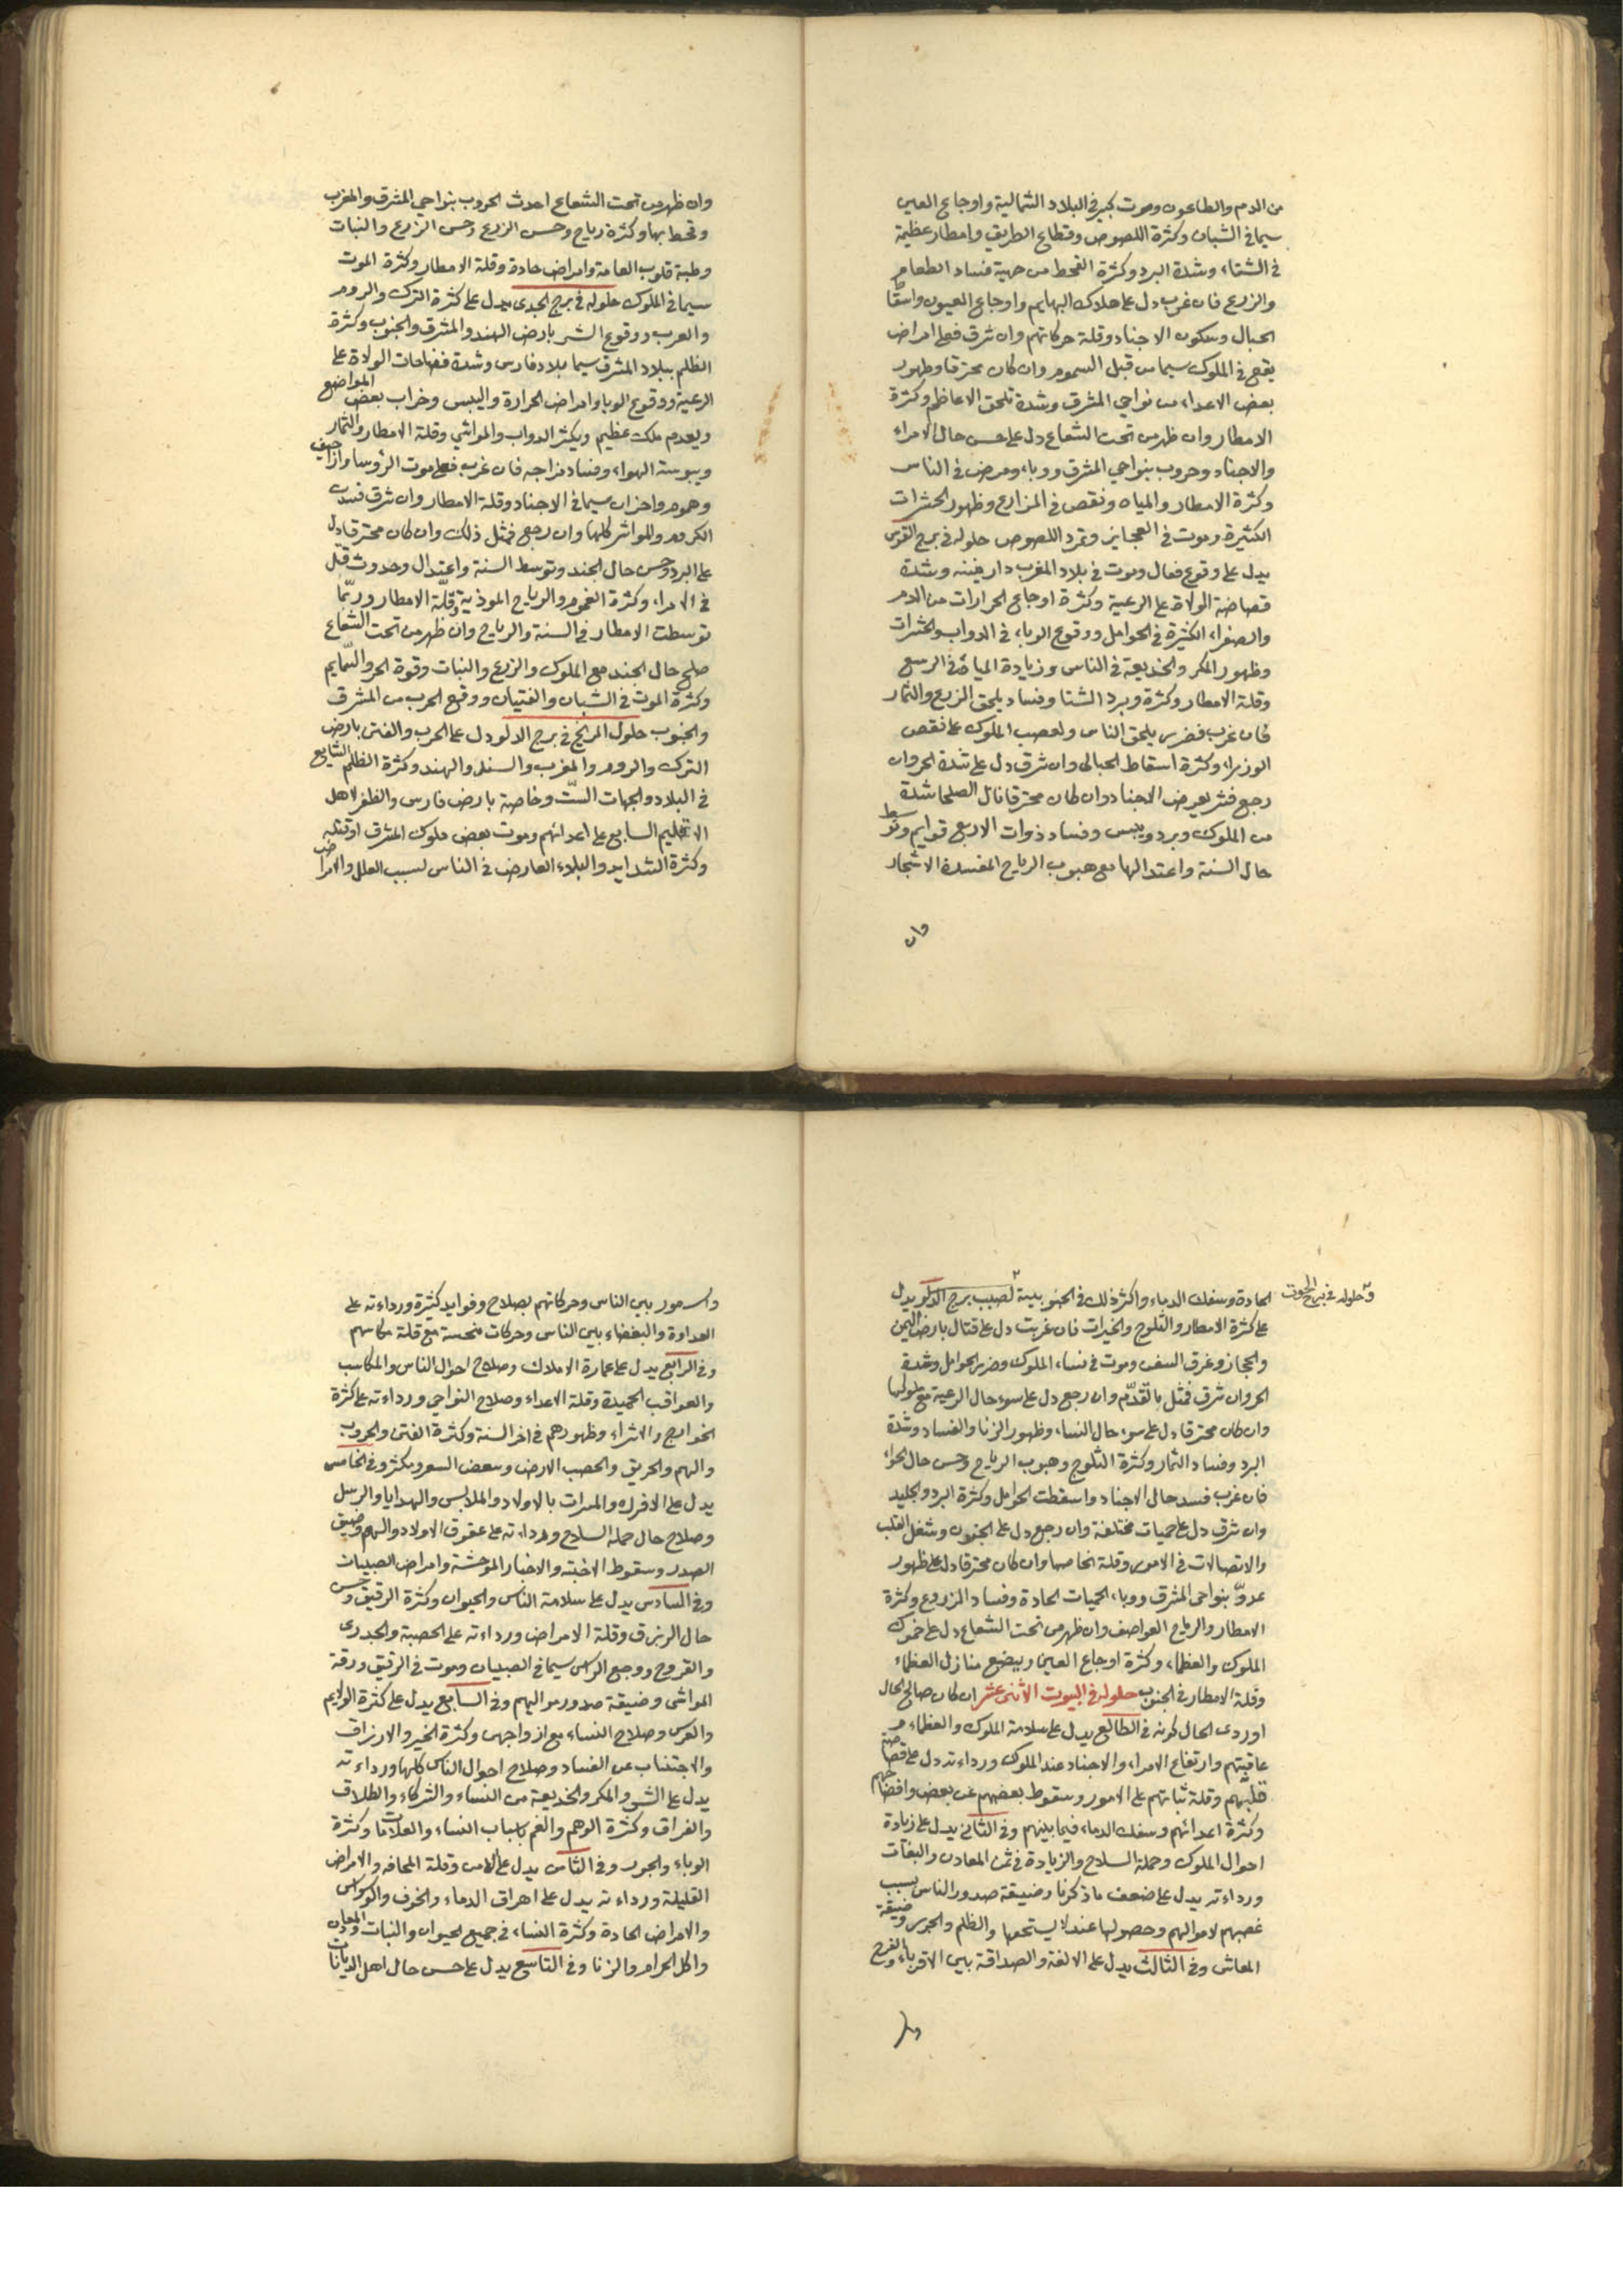 من الدم والطاعون وموت كبير في البلاد الشمالية واوجاع العين
سيما في الشبان وكثرة اللصوص وقطاع الطريق وامطار عظيمة
في الشتاء وشدة البرد وكثرة القحط من جهة فساد الطعام
والزرع فان غرب دل على هلاك البهايم واوجاع العيون واسقاط
الحبال وسكون الاجناد وقلة حركاتهم وان شرق فعلى امراض
يقع في الملوك سيما من قبل السموم وان كان محترقا وظهور
بعض الاعداء من نواحي المشرق وشدة تلحق الاعاظم وكثرة
الامطار وان ظهر من تحت الشعاع دل على حسن حال الامراء
والاجناد وحروب بنواحي المشرق ووباء ومرض في الناس
وكثرة الامطار والمياه ونقص في المزارع وظهور الحشرات
الكثيرة وموت في العجايز وتمرد اللصوص حلوله في برج القوس
يدل على وقوع فعال وموت في بلاد المغرب وشدة
الولاة على الرعية وكثرة اوجاع الحرارات من الدم
والصفراء الكثيرة في الحوامل ووقوع الوباء في الدواب والحشرات
وظهور المكر والخديعة في الناس وزيادة المياه في الربيع
وقلة الامطار وكثرة وبرد الشتا وفساد يلحق الزرع والثمار
فان غرب فضرر يلحق الناس الملوك على نقص
الوزراء وكثرة اسقاط الحبالى وان شرق دل على شدة الحر وان
رجع فشر يعرض الاجناد وان كان محترقا نال الصلحا شدة
من الملوك وبرد ويبس وفساد ذوات الاربع قوايم وتوسط
حال السنة واعتدالها مع هبوب الرياح المفسدة الاشجار
وان
وان ظهر من تحت الشعاع احدث الحروب بنواحي المشرق والمغرب
وقحط بها وكثرة رياح وحسن الزرع وحسن الزرع والنبات
وطبة قلوب العامة وامراض حادة وقلة الامطار وكثرة الموت
سيما في الملوك حلوله في برج الجدى يدل على كثرة الترك والروم
والعرب ووقوع الشر بارض الهند والمشرق والجنوب وكثرة
الظلم ببلاد المشرق سيما بلاد فارس وشدة الولاة على
الرعية ووقوع الوبا وامراض الحرارة واليبس وخراب بعض المواضع
ويعدم ملك عظيم ويكثر الدواب والمواشي وقلة الامطار والثمار
ويبوسة الهواء وفساد مزاجه فان غرب فعلى موت الرؤسا واراجيف
وهموم واحزان سيما في الاجناد وقلة الامطار وان شرق فسدت
الكروم كلها وان رجع فمثل ذلك وان كان محترقا دل
على البرد وحسن حال الجند وتوسط السنة واعتدال وحدوث قتل
في الامراء وكثرة الغموم والرياح الموذية وقلة الامطار وربما
توسطت الامطار في السنة والرياح وان ظهر من تحت الشعاع
صلح حال الجند مع الملوك والزرع والنبات وقوة الحر والسمايم
وكثرة الموت في الشبان والفتيان ووقع الحرب من المشرق
والجنوب حلول المريخ في برج الدلو دل على الحرب والفتن بارض
الترك والروم والمغرب والسند والهند وكثرة الظلم الشايع
في البلاد والجهات الست وخاصة بارض فارس والظفر لاهل
الاقليم السابع على اعدائهم وموت بعض ملوك المشرق او قتله
وكثرة الشدايد والبلاء العارض في الناس بسبب العلل والامراض
وحلوله في برج الحوت
الحادة وسفك الدماء واكثر ذلك في الجنوب برج الدلو يدل
على كثرة الامطار والثلوج والخيرات فان غربت دل على قتال بارض اليمن
والحجاز وغرق السفن وموت في نساء الملوك وضرر الحوامل وشدة
الحر وان شرق فمثل ما تقدم وان رجع دل على سوء حال الرعية مع ملوكها
وان كان محترقا دل على سوء حال النساء وظهور الزنا والفساد وشدة
البرد وفساد الثمار وكثرة الثلوج وهبوب الرياح وحسن حال
فان غرب فسد حال الاجناد واسقطت الحوامل وكثرة البرد والجليد
وان شرق دل على حميات مختلفة وان رجع دل على الجنون وشغل القلب
والاتصالات في الامور وقلة وان كان محترقا دل على ظهور
عدو بنواحي المشرق ووباء الحميات الحادة وفساد المزروع وكثرة
الامطار والرياح العواصف وان ظهر من تحت الشعاع دل على
الملوك والعظماء وكثرة اوجاع العين ويضع منازل العظماء
وقلة الامطار في الجنوب حلوله في البيوت الاثنى عشر ان كان صالح الحال
او ردى الحال كونه في الطالع يدل على سلامة الملوك والعظماء
عاقبتهم وارتفاع الامراء والاجناد عند الملوك ورداءته دل على
وقلة ثباتهم على الامور وسقوط بعضهم عن بعض
وكثرة اعدائهم وسفك الدماء فيما بينهم وفي الثاني يدل على زيادة
احوال الملوك وحملة السلاح والزيادة في ثمن المعادن
ورداءته يدل على ضعف ما ذكرنا وضيقة صدور الناس بسبب
غصبهم لاموالهم وحصولها عند لا يستحقها والظلم والجور وضيقة
المعاش وفي الثالث يدل على الالفة والصداقة بين الاقرباء والفرح
بين الناس وحركاتهم بصلاح وفوايد كثيرة ورداءته على
العداوة والبغضاء بين الناس وحركات منحسة مع قلة
وفي الرابع يدل على عمارة الاملاك وصلاح احوال الناس والمكاسب
والعواقب الحميدة وقلة الاعداء وصلاح النواحي ورداءته على كثرة
الخوارج وظهورهم في اخر السنة وكثرة الفتن والحروب
والهم والحريق الارض وفي الخامس
يدل على الافراح والمسرات بالاولاد والملابس والهدايا والرسل
وصلاح حال حملة السلاح ورداءته على عقوق الاولاد والهم وضيق
الصدر وسقوط الاجنة والاخبار الموحشة وامراض الصبيان
وفي السادس يدل على سلامة الناس والحيوان وكثرة الرقيق وحسن
حال الرزق وقلة الامراض ورداءته على الحصبة والجدرى
والقروح ووجع الراس سيما في الصبيان وموت في الرقيق ورقة
المواشي وضيقة صدور مواليهم وفي السابع يدل على كثرة الولايم
والعرس وصلاح النساء مع ازواجهن وكثرة الخير والارزاق
والاجتناب عن الفساد وصلاح احوال الناس كلها ورداءته
يدل على الشر والمكر والخديعة من النساء والشركاء والطلاق
والفراق وكثرة الوهم والغم باسباب النساء وكثرة
الوباء والجور وفي الثامن يدل على الامن وقلة المخافة والامراض
القليلة ورداءته يدل على اهراق الدماء والخوف والوسواس
والامراض الحادة وكثرة النساء في جميع الحيوان والنبات والمعادن
واكل الحرام والزنا وفي التاسع يدل على حسن حال اهل الديانات